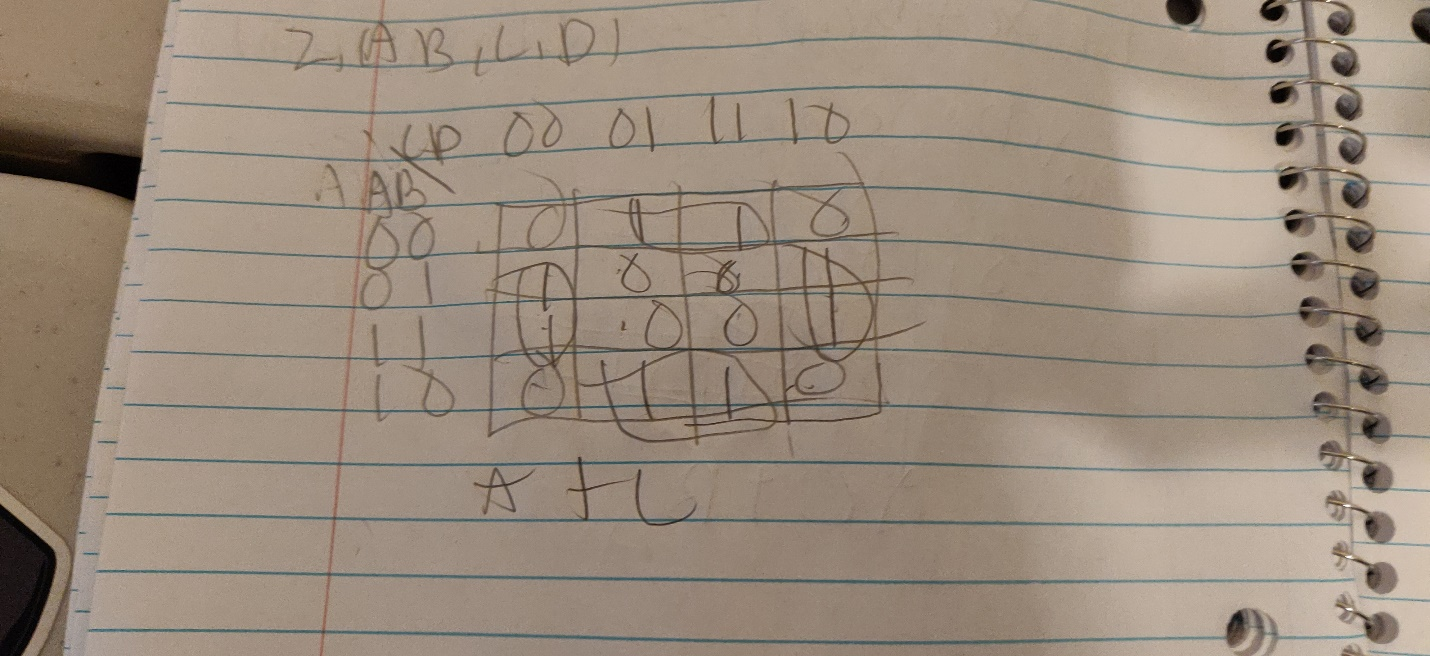 Z,(A B, C, D)
CD 00 01 11 10
A AB
00 0 1 1 0
01 1 0 0 1
11 1 0 0 1
10 0 1 1 0
A + C